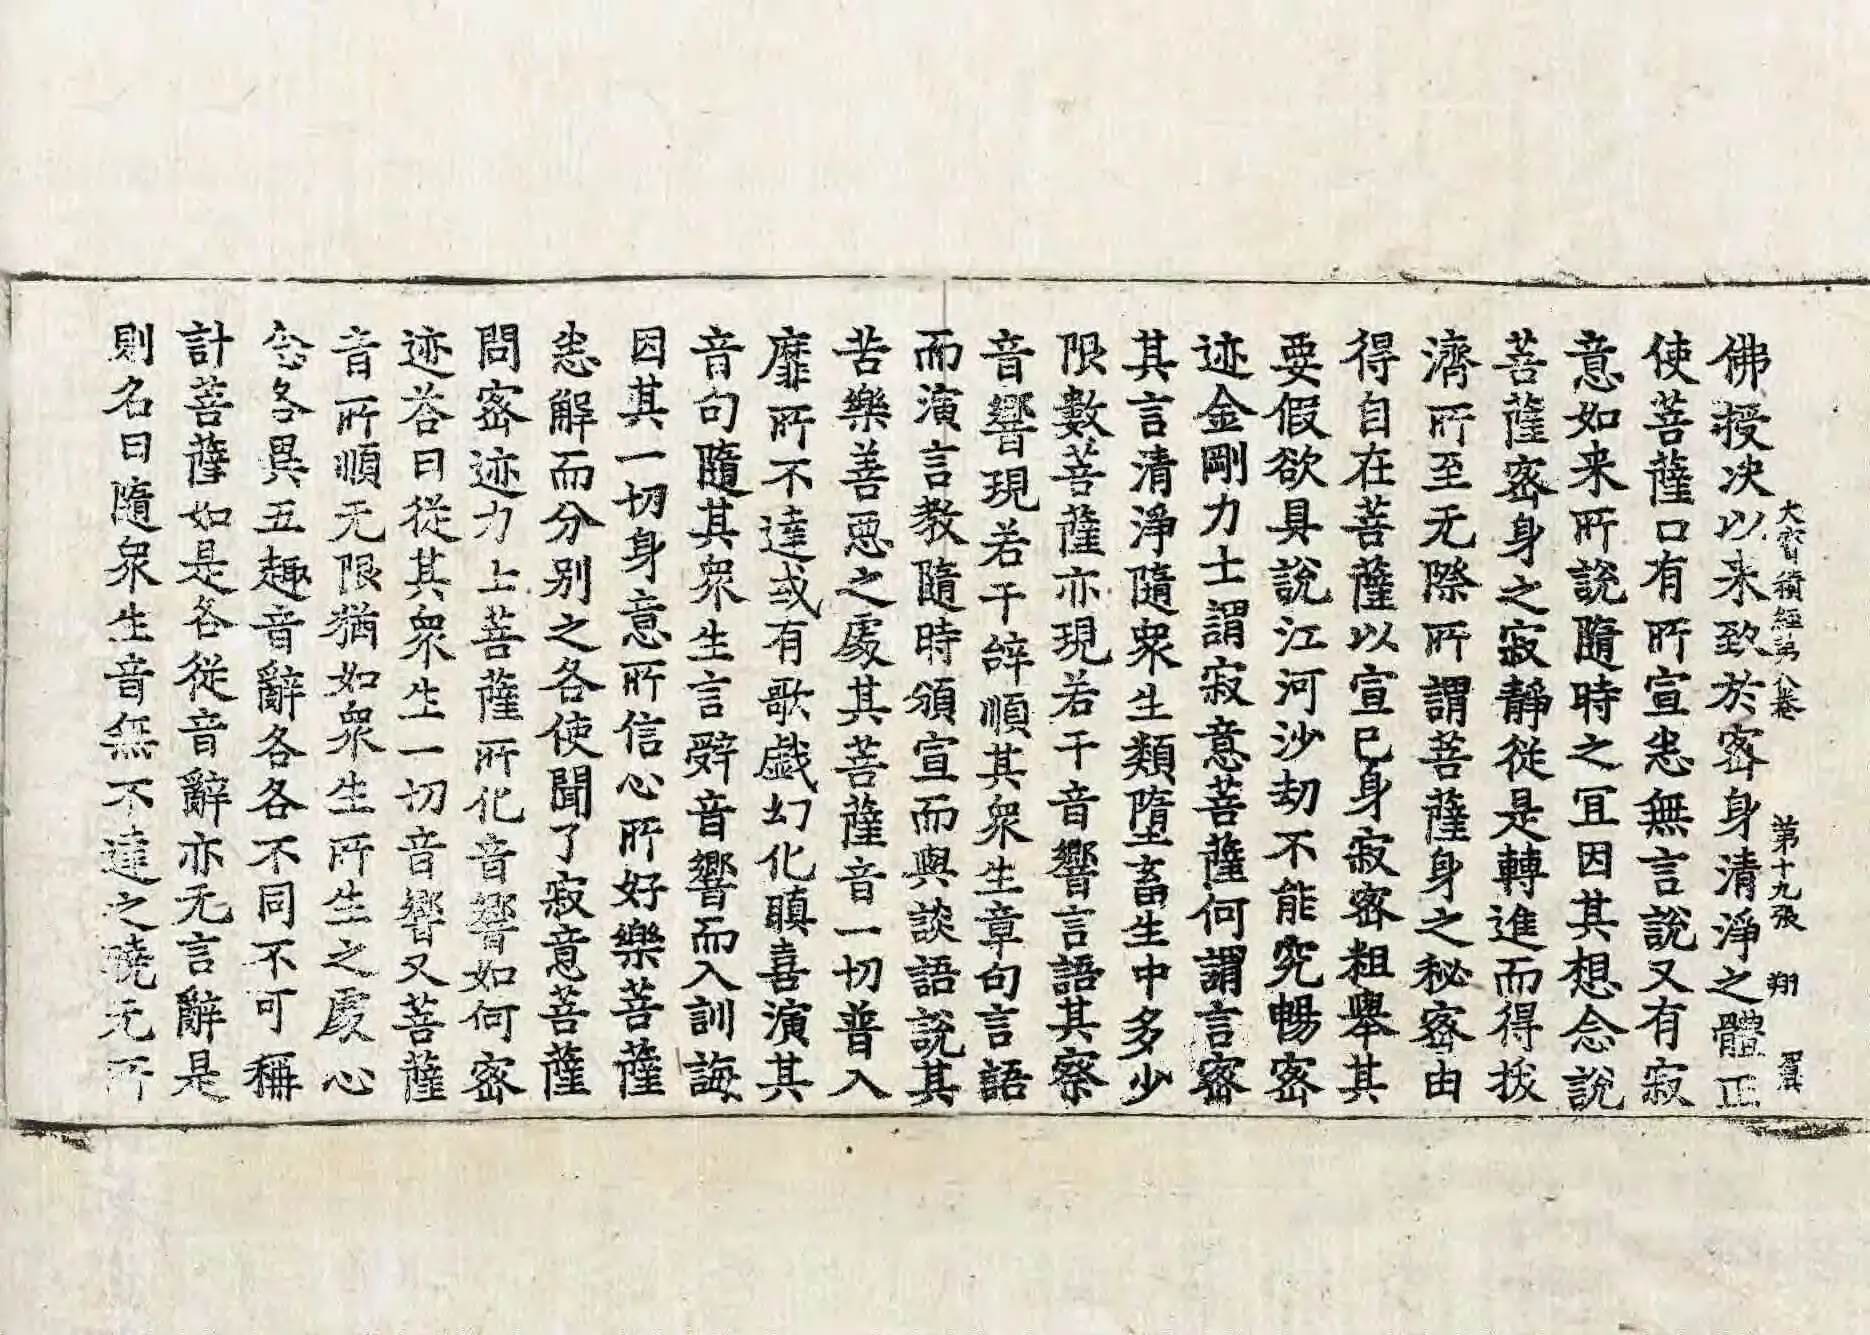 大寶積經第八卷 第十九張 翔 翼
佛授决以来致於密身清淨之體正
使菩薩口有所宣恙無言說又有寂
意如来所說隨時之冝因其想念說
菩薩密身之寂靜從是轉進而得拔
濟所至无際所謂菩薩身之秘密由
得自在菩薩以宣己身寂密粗舉其
要假欲具說江河沙劫不能究暢密
迹金剛力士謂寂意菩薩何謂言密
其言清淨隨衆生類墮畜生中多少
限數菩薩亦現若干音響言語其察
音響現若干辝順其衆生章句言語
而演言教隨時頒宣而與談語說其
苦樂善恶之處其菩薩音一切普入
靡所不達或有歌戱幻化瞋喜演其
音句隨其衆生言辤音響而入訓誨
因其一切身意所信心所好樂菩薩
恙解而分別之各使聞了寂意菩薩
問密迹力士菩薩所化音響如何密
迹荅曰從其衆生一切音響又菩薩
音所順无限猶如衆生所生之處心
念各異五趣音辭各各不同不可稱
計菩薩如是各從音辭亦无言辭是
則名曰隨衆生音無不達之曉无所